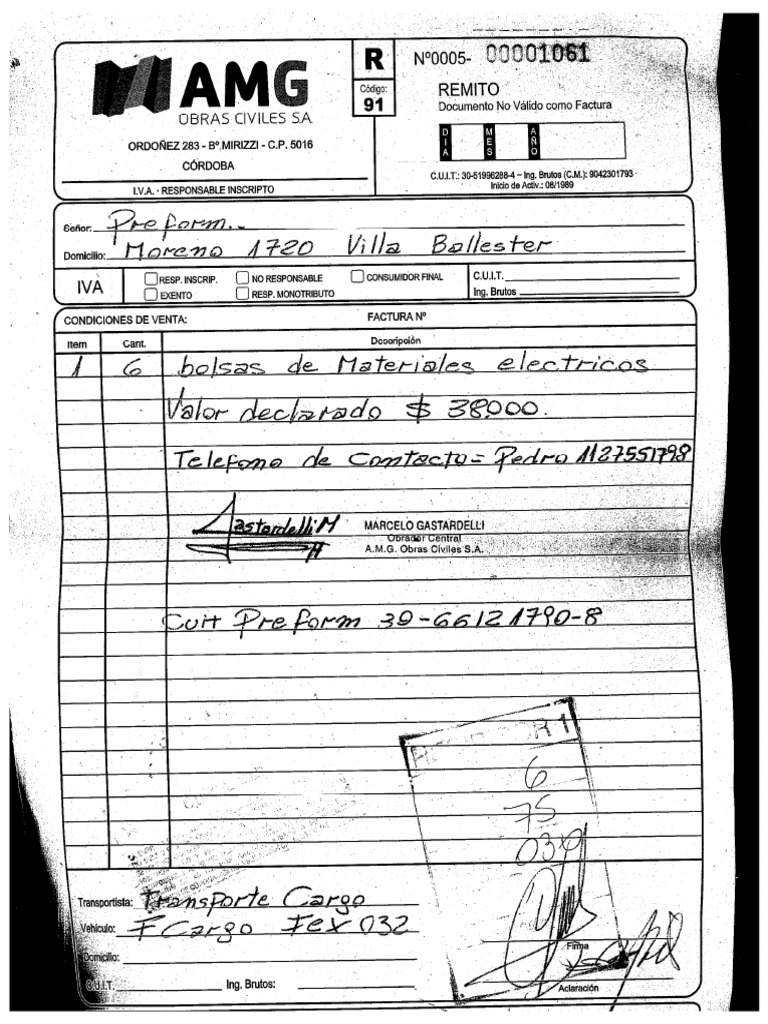 AMG
OBRAS CIVILES S.A.
ORDOÑEZ 283 - Bº.MIRIZZI - C.P. 5016
CÓRDOBA
I.V.A. - RESPONSABLE INSCRIPTO
R
Código:
91
Nº0005- 00001061
REMITO
Documento No Válido como Factura
DIA MES AÑO
C.U.I.T.: 30-51996288-4 ~ Ing. Brutos (C.M.): 9042301793
Inicio de Activ.: 08/1969
Señor: Preform.-
Domicilio: Moreno 1720 Villa Ballester
IVA
RESP. INSCRIP. NO RESPONSABLE CONSUMIDOR FINAL
EXENTO RESP. MONOTRIBUTO
C.U.I.T.
Ing. Brutos
CONDICIONES DE VENTA: FACTURA Nº
Item Cant. Descripción
1 6 bolsas de Materiales electricos
Valor declarado $ 38000.
Telefono de Contacto = Pedro 1127551798
Gastardelli M
MARCELO GASTARDELLI
Obrador Central
A.M.G. Obras Civiles S.A.
Cuit Preform 30-66121790-8
6
75
Transportista: Transporte Cargo
Vehículo: F Cargo Iex 032
Domicilio:
C.U.I.T. Ing. Brutos:
Firma
Aclaración